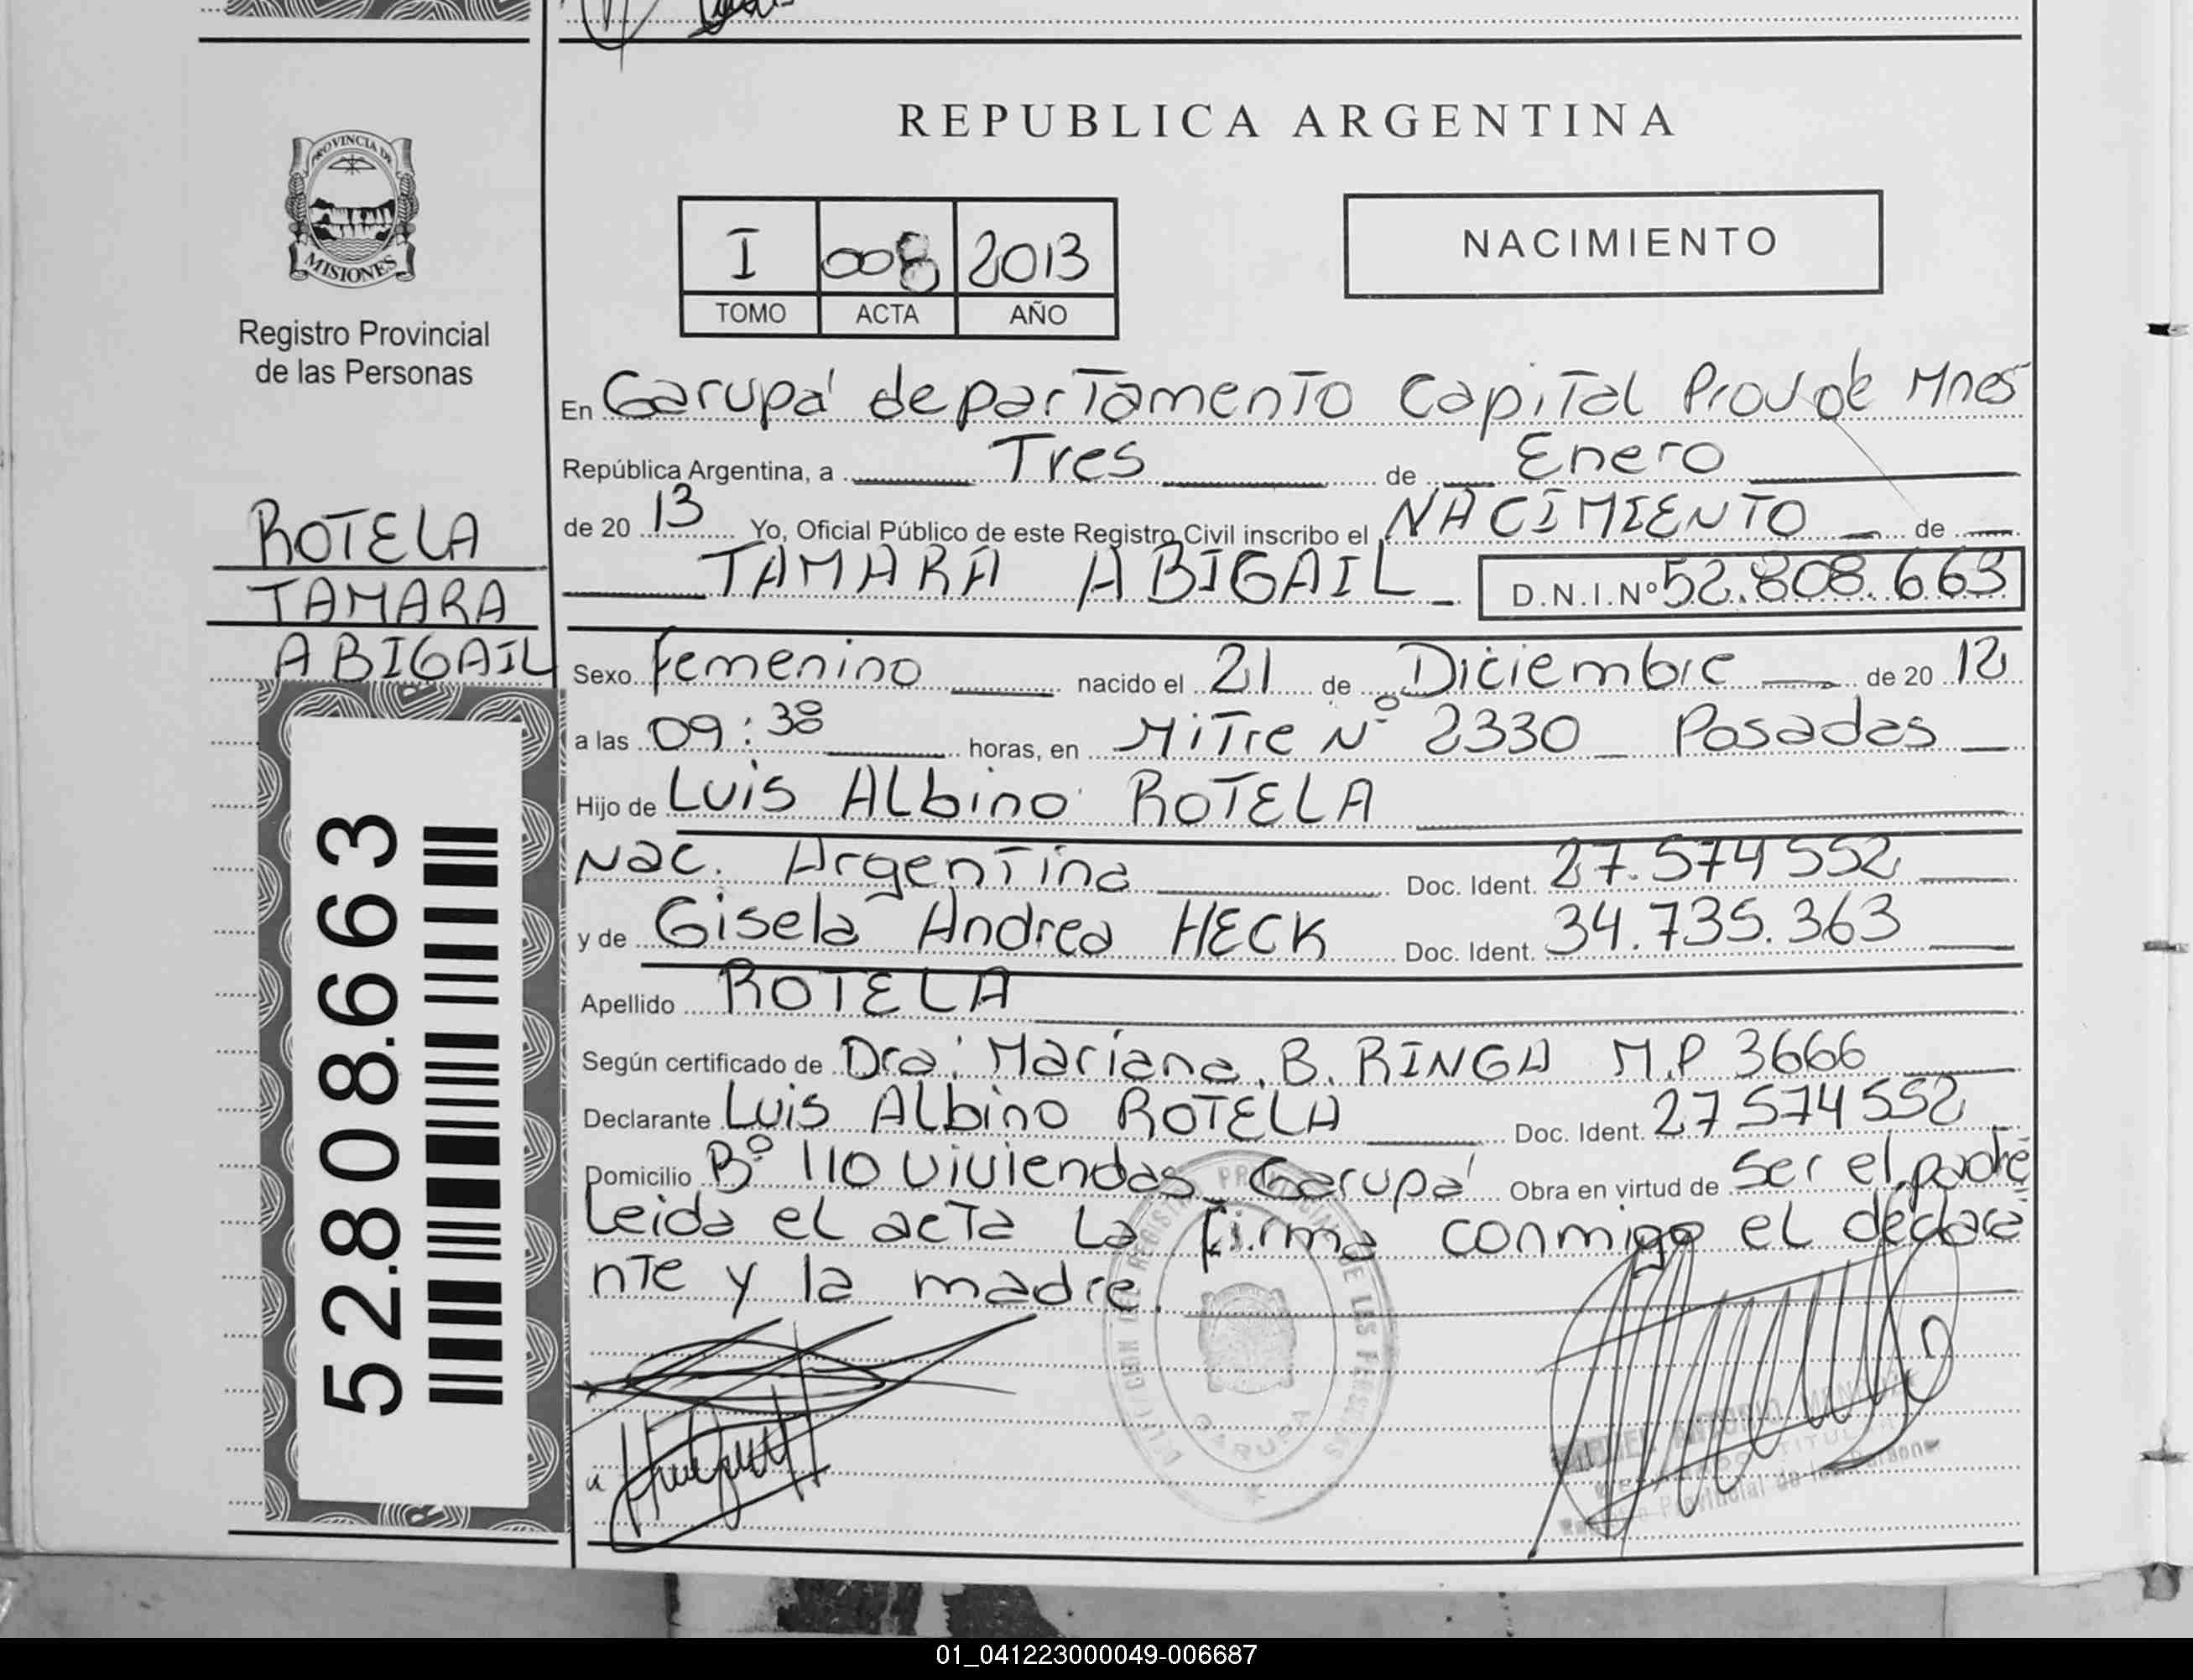 REPUBLICA ARGENTINA
PROVINCIA DE
MISIONES
Registro Provincial
de las Personas
I 008 2013
TOMO ACTA AÑO
NACIMIENTO
En Garupá departamento Capital Prov de Mnes
República Argentina, a Tres de Enero
de 20 13 Yo, Oficial Público de este Registro Civil inscribo el NACIMIENTO de
TAMARA ABIGAIL D.N.I.Nº 52.808.663
ROTELA
TAMARA
ABIGAIL
52.808.663
Sexo Femenino nacido el 21 de Diciembre de 20 12
a las 09:38 horas, en Mitre Nº 2330 Posadas
Hijo de Luis Albino ROTELA
Nac. Argentina Doc. Ident. 27.574552
y de Gisela Andrea HECK Doc. Ident. 34.735.363
Apellido ROTELA
Según certificado de Dra: Mariana. B. RINGA M.P 3666
Declarante Luis Albino ROTELA Doc. Ident. 27574552
Domicilio Bº 110 viviendas Garupá Obra en virtud de ser el padre
Leida el acta La firma conmigo el declara
nte y la madre.
GARUPA
ANTONIO
TITULAR
Provincial de las Personas
01_041223000049-006687